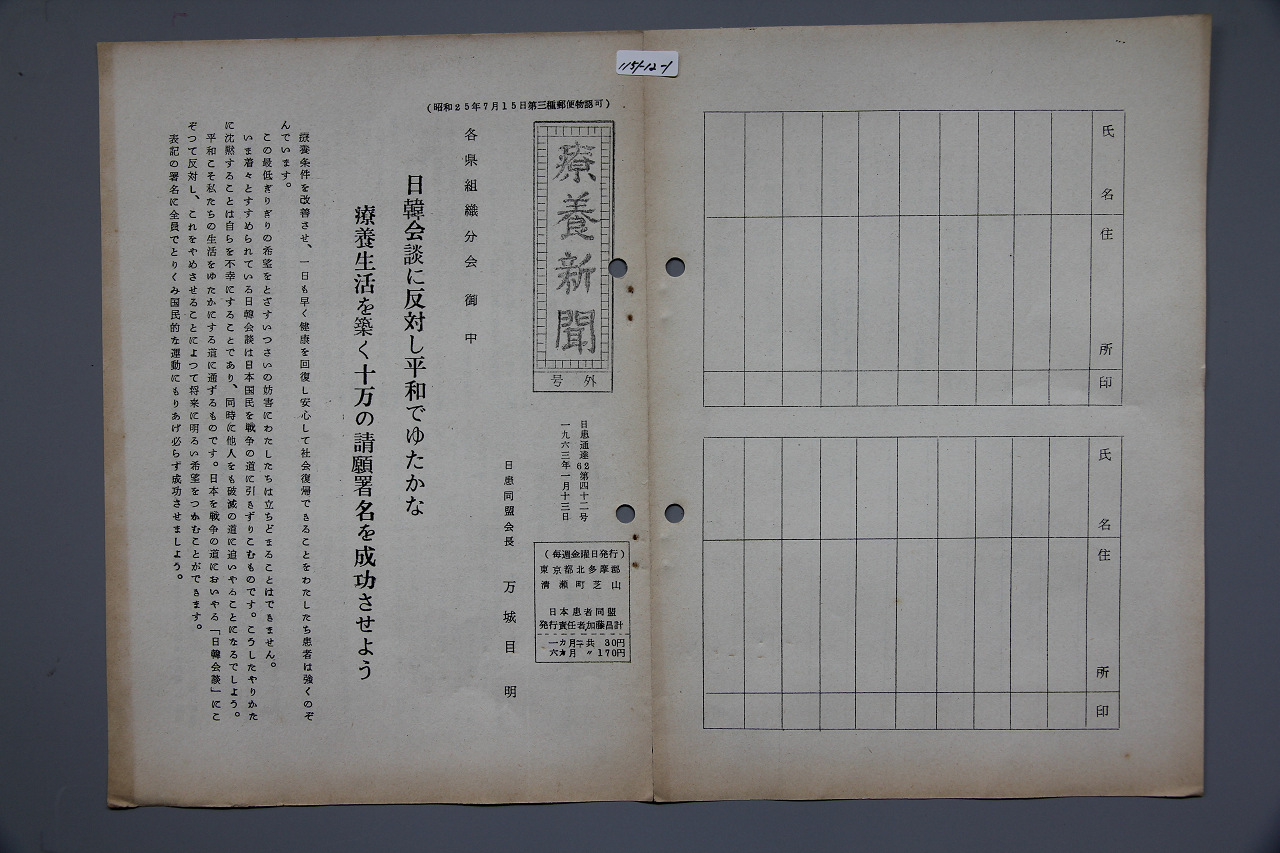 115/-12-1
(昭和25年7月15日第三種郵便物認可)
療養新聞
号外
日患通達62第四十二号
一九六三年一月十三日
(毎週金曜日発行)
東京都北多摩郡
清瀬町芝山
日本患者同盟
発行責任者加藤昌計
一カ月〒共 30円
六カ月 〃 170円
各県組織分会 御中
日患同盟会長 万城目 明
日韓会談に反対し平和でゆたかな
療養生活を築く十万の請願署名を成功させよう
療養条件を改善させ、一日も早く健康を回復し安心して社会復帰できることをわたしたち患者は強くのぞ
んでいます。
この最低ぎりぎりの希望をとざすいつさいの妨害にわたしたちは立ちどまることはできません。
いま着々とすすめられている日韓会談は日本国民を戦争の道に引きずりこむものです。こうしたやりかた
に沈黙することは自らを不幸にすることであり、同時に他人をも破滅の道に追いやることになるでしよう。
平和こそ私たちの生活をゆたかにする道に通ずるものです。日本を戦争の道においやる「日韓会談」にこ
ぞつて反対し、これをやめさせることによつて将来に明るい希望をつかむことができます。
表記の署名に全員でとりくみ国民的な運動にもりあげ必らず成功させましよう。
氏名
住所
印
氏名
住所
印